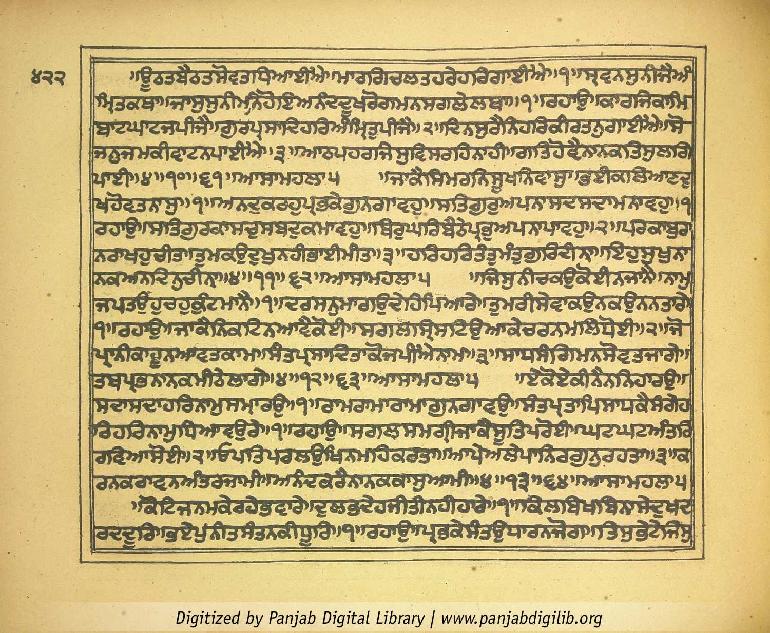 ੪੨੨
॥ਊਠਤਬੈਠਤਸੋਵਤਧਿਆਈਐ॥ਮਾਰਗਿਚਲਤਹਰੇਹਰਿਗਾਈਐ॥੧॥ਸ੍ਰਵਨਸੁਨੀਜੈਅੰ
ਮ੍ਰਿਤਕਥਾ॥ਜਾਸੁਸੁਨੀਮਨਿਹੋਇਅਨੰਦਦੂਖਰੋਗਮਨਸਗਲੇਲਥਾ॥੧॥ਰਹਾਉ॥ਕਾਰਜਿਕਾਮਿ
ਬਾਟਘਾਟਜਪੀਜੈ॥ਗੁਰਪ੍ਰਸਾਦਿਹਰਿਅੰਮ੍ਰਿਤੁਪੀਜੈ॥੨॥ਦਿਨਸੁਰੈਨਿਹਰਿਕੀਰਤਨੁਗਾਈਐ॥ਸੋ
ਜਨੁਜਮਕੀਵਾਟਨਪਾਈਐ॥੩॥ਆਠਪਹਰਜਿਸੁਵਿਸਰਹਿਨਾਹੀ॥ਗਤਿਹੋਵੈਨਾਨਕਤਿਸੁਲਗਿ
ਪਾਈ॥੪॥੧੦॥੬੧॥ਆਸਾਮਹਲਾ੫ ॥ਜਾਕੈਸਿਮਰਨਿਸੂਖਨਿਵਾਸੁ॥ਭਈਕਲਿਆਣਦੁ
ਖਹੋਵਤਨਾਸੁ॥੧॥ਅਨਦੁਕਰਹੁਪ੍ਰਭਕੇਗੁਨਗਾਵਹੁ॥ਸਤਿਗੁਰੁਅਪਨਾਸਦਸਦਾਮਨਾਵਹੁ॥੧
ਰਹਾਉ॥ਸਤਿਗੁਰਕਾਸਚੁਸਬਦੁਕਮਾਵਹੁ॥ਥਿਰੁਘਰਿਬੈਠੇਪ੍ਰਭੁਅਪਨਾਪਾਵਹੁ॥੨॥ਪਰਕਾਬੁਰਾ
ਨਰਾਖਹੁਚੀਤ॥ਤੁਮਕਉਦੁਖੁਨਹੀਭਾਈਮੀਤ॥੩॥ਹਰਿਹਰਿਤੰਤੁਮੰਤੁਗੁਰਿਦੀਨਾ॥ਇਹੁਸੁਖੁਨਾ
ਨਕਅਨਦਿਨੁਚੀਨਾ॥੪॥੧੧॥੬੨॥ਆਸਾਮਹਲਾ੫ ॥ਜਿਸੁਨੀਚਕਉਕੋਈਨਜਾਨੈ॥ਨਾਮੁ
ਜਪਤਉਹੁਚਹੁਕੁੰਟਮਾਨੈ॥੧॥ਦਰਸਨੁਮਾਗਉਦੇਹਿਪਿਆਰੇ॥ਤੁਮਰੀਸੇਵਾਕਉਨਕਉਨਨਤਾਰੇ
੧॥ਰਹਾਉ॥ਜਾਕੈਨਿਕਟਿਨਆਵੈਕੋਈ॥ਸਗਲਸ੍ਰਿਸਟਿਉਆਕੇਚਰਨਮਲਿਧੋਈ॥੨॥ਜੋ
ਪ੍ਰਾਨੀਕਾਹੂਨਆਵਤਕਾਮ॥ਸੰਤਪ੍ਰਸਾਦਿਤਾਕੋਜਪੀਐਨਾਮ॥੩॥ਸਾਧਸੰਗਿਮਨਸੋਵਤਜਾਗੇ॥
ਤਬਪ੍ਰਭਨਾਨਕਮੀਠੇਲਾਗੇ॥੪॥੧੨॥੬੩॥ਆਸਾਮਹਲਾ੫ ॥ਏਕੋਏਕੀਨੈਨਨਿਹਾਰਉ॥
ਸਦਾਸਦਾਹਰਿਨਾਮੁਸਮ੍ਹਾਰਉ॥੧॥ਰਾਮਰਾਮਾਰਾਮਾਗੁਨਗਾਵਉ॥ਸੰਤਪ੍ਰਤਾਪਿਸਾਧਕੈਸੰਗੇਹ
ਰਿਹਰਿਨਾਮੁਧਿਆਵਉਰੇ॥੧॥ਰਹਾਉ॥ਸਗਲਸਮਗ੍ਰੀਜਾਕੈਸੂਤਿਪਰੋਈ॥ਘਟਘਟਅੰਤਰਿ
ਰਵਿਆਸੋਈ॥੨॥ਓਪਤਿਪਰਲਉਖਿਨਮਹਿਕਰਤਾ॥ਆਪਿਅਲੇਪਾਨਿਰਗੁਨੁਰਹਤਾ॥੩॥ਕ
ਰਨਕਰਾਵਨਅੰਤਰਜਾਮੀ॥ਅਨੰਦਕਰੈਨਾਨਕਕਾਸੁਆਮੀ॥੪॥੧੩॥੬੪॥ਆਸਾਮਹਲਾ੫
॥ਕੋਟਿਜਨਮਕੇਰਹੇਭਵਾਰੇ॥ਦੁਲਭਦੇਹਜੀਤੀਨਹੀਹਾਰੇ॥੧॥ਕਿਲਬਿਖਬਿਨਾਸੇਦੁਖਦ
ਰਦਦੂਰਿ॥ਭਏਪੁਨੀਤਸੰਤਨਕੀਧੂਰਿ॥੧॥ਰਹਾਉ॥ਪ੍ਰਭਕੇਸੰਤਉਧਾਰਨਜੋਗ॥ਤਿਸੁਭੇਟੇਜਿਸੁ
Digitized by Panjab Digital Library | www.panjabdigilib.org